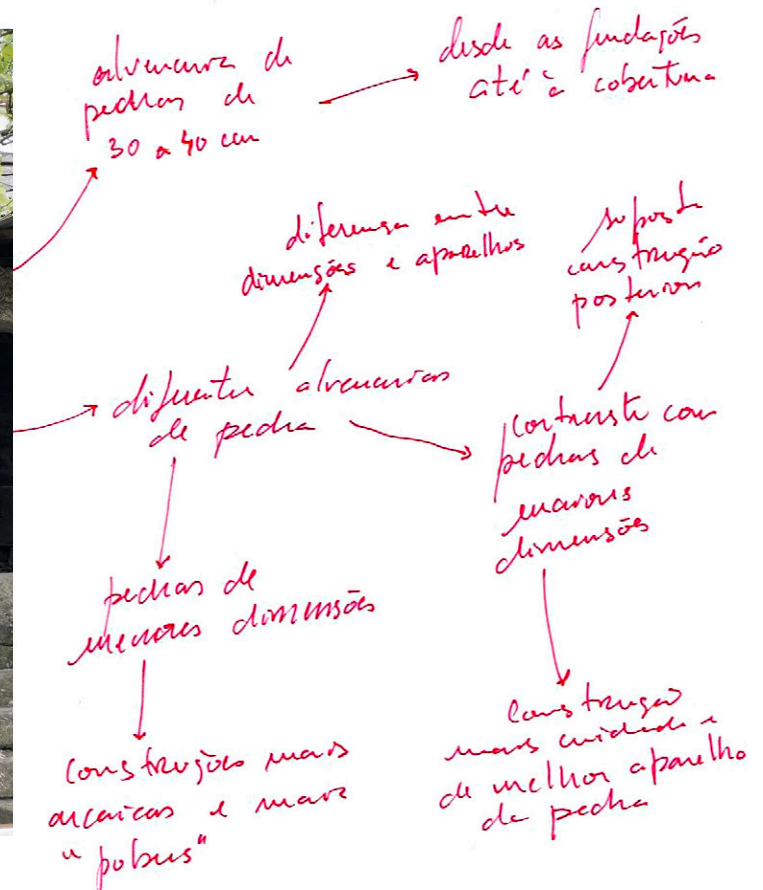 alvenaria de
pedras de
30 a 40 cm
desde as fundações
até à cobertura
diferença entre
dimensões e aparelhos
suposta
construção
posterior
diferentes alvenarias
de pedra
contraste com
pedras de
maiores
dimensões
pedras de
menores dimensões
construções mais
arcaicas e mais
"pobres"
construção
mais cuidada e
de melhor aparelho
de pedra